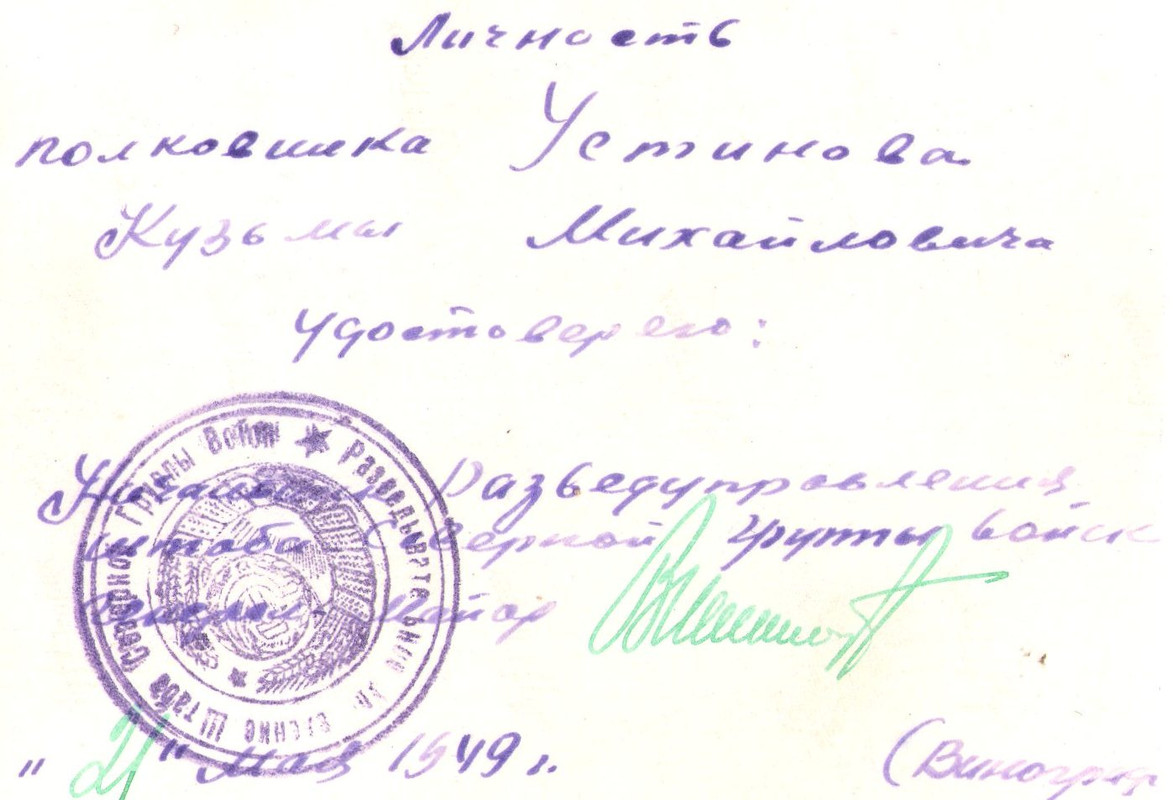 Личность
полковника Устинова
Кузьмы Михайловича
удостоверяю:
Начальник Разведуправления
штаба Северной группы войск
Генерал-Майор
"21" Мая 1949 г.
(Виногра
Разведывательное Управление Штаба Северной Группы Войск